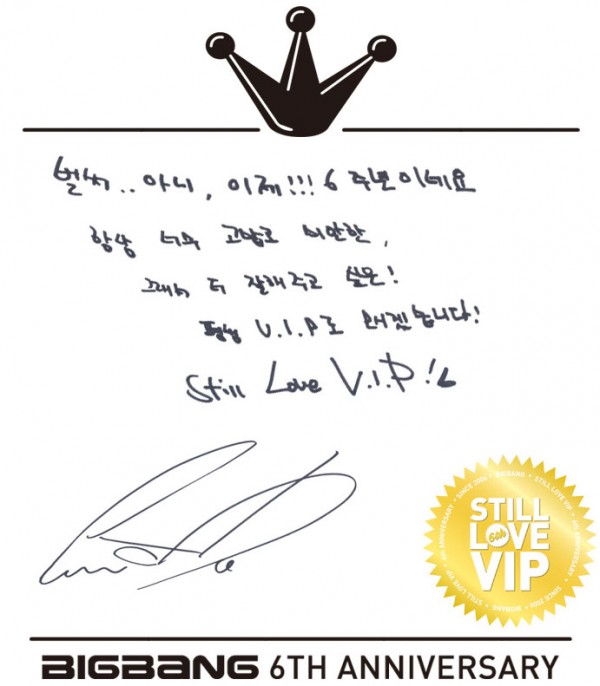 벌써.. 아니, 이제!!! 6 주년이네요
항상 너무 고맙고 미안한,
그래서 더 잘해주고 싶은!
평생 V.I.P로 모시겠습니다!
Still Love V.I.P!
STILL LOVE 6th VIP
SINCE 2006 • BIGBANG • STILL LOVE VIP • 6TH ANNIVERSARY
BIGBANG 6TH ANNIVERSARY